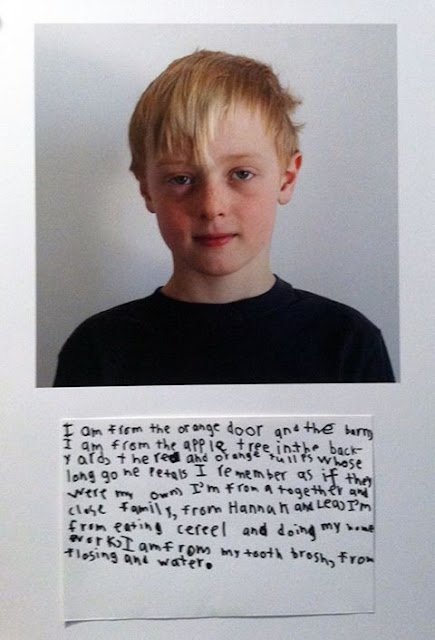 I am from the orange door and the barn,
I am from the apple tree, in the back-
yard, the red and orange tulips whose
long gone petals I remember as if they
were my own, I'm from a together and
close family, from Hannah and Lea, I'm
from eating cereel and doing my home
work, I am from my tooth brosh, from
flosing and water.